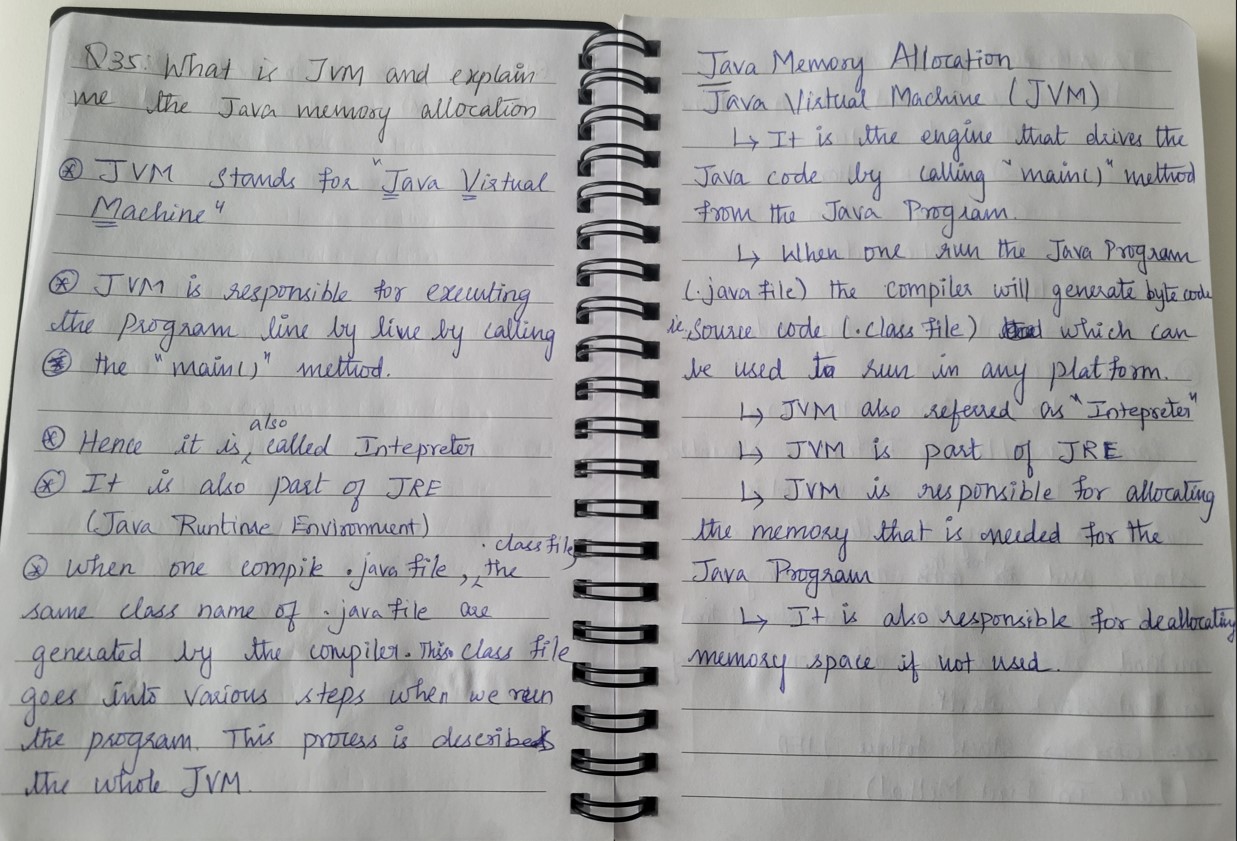 Q35: What is JVM and explain
me the Java memory allocation
⊛ JVM stands for "Java Virtual
Machine"
⊛ JVM is responsible for executing
the program line by line by calling
⊛ the "main()" method.
⊛ Hence it is also called Intepreter
⊛ It is also part of JRE
(Java Runtime Environment)
⊛ When one compile .java file, .class file, the
same class name of .java file are
generated by the compiler. This class file
goes into various steps when we run
the program. This process is describes
the whole JVM.
Java Memory Allocation
Java Virtual Machine (JVM)
↳ It is the engine that drives the
Java code by calling "main()" method
from the Java Program.
↳ When one run the Java Program
(.java file) the compiler will generate byte code
ie. Source code (.class file) which can
be used to run in any platform.
↳ JVM also referred as "Intepreter"
↳ JVM is part of JRE
↳ JVM is responsible for allocating
the memory that is needed for the
Java Program
↳ It is also responsible for deallocating
memory space if not used.